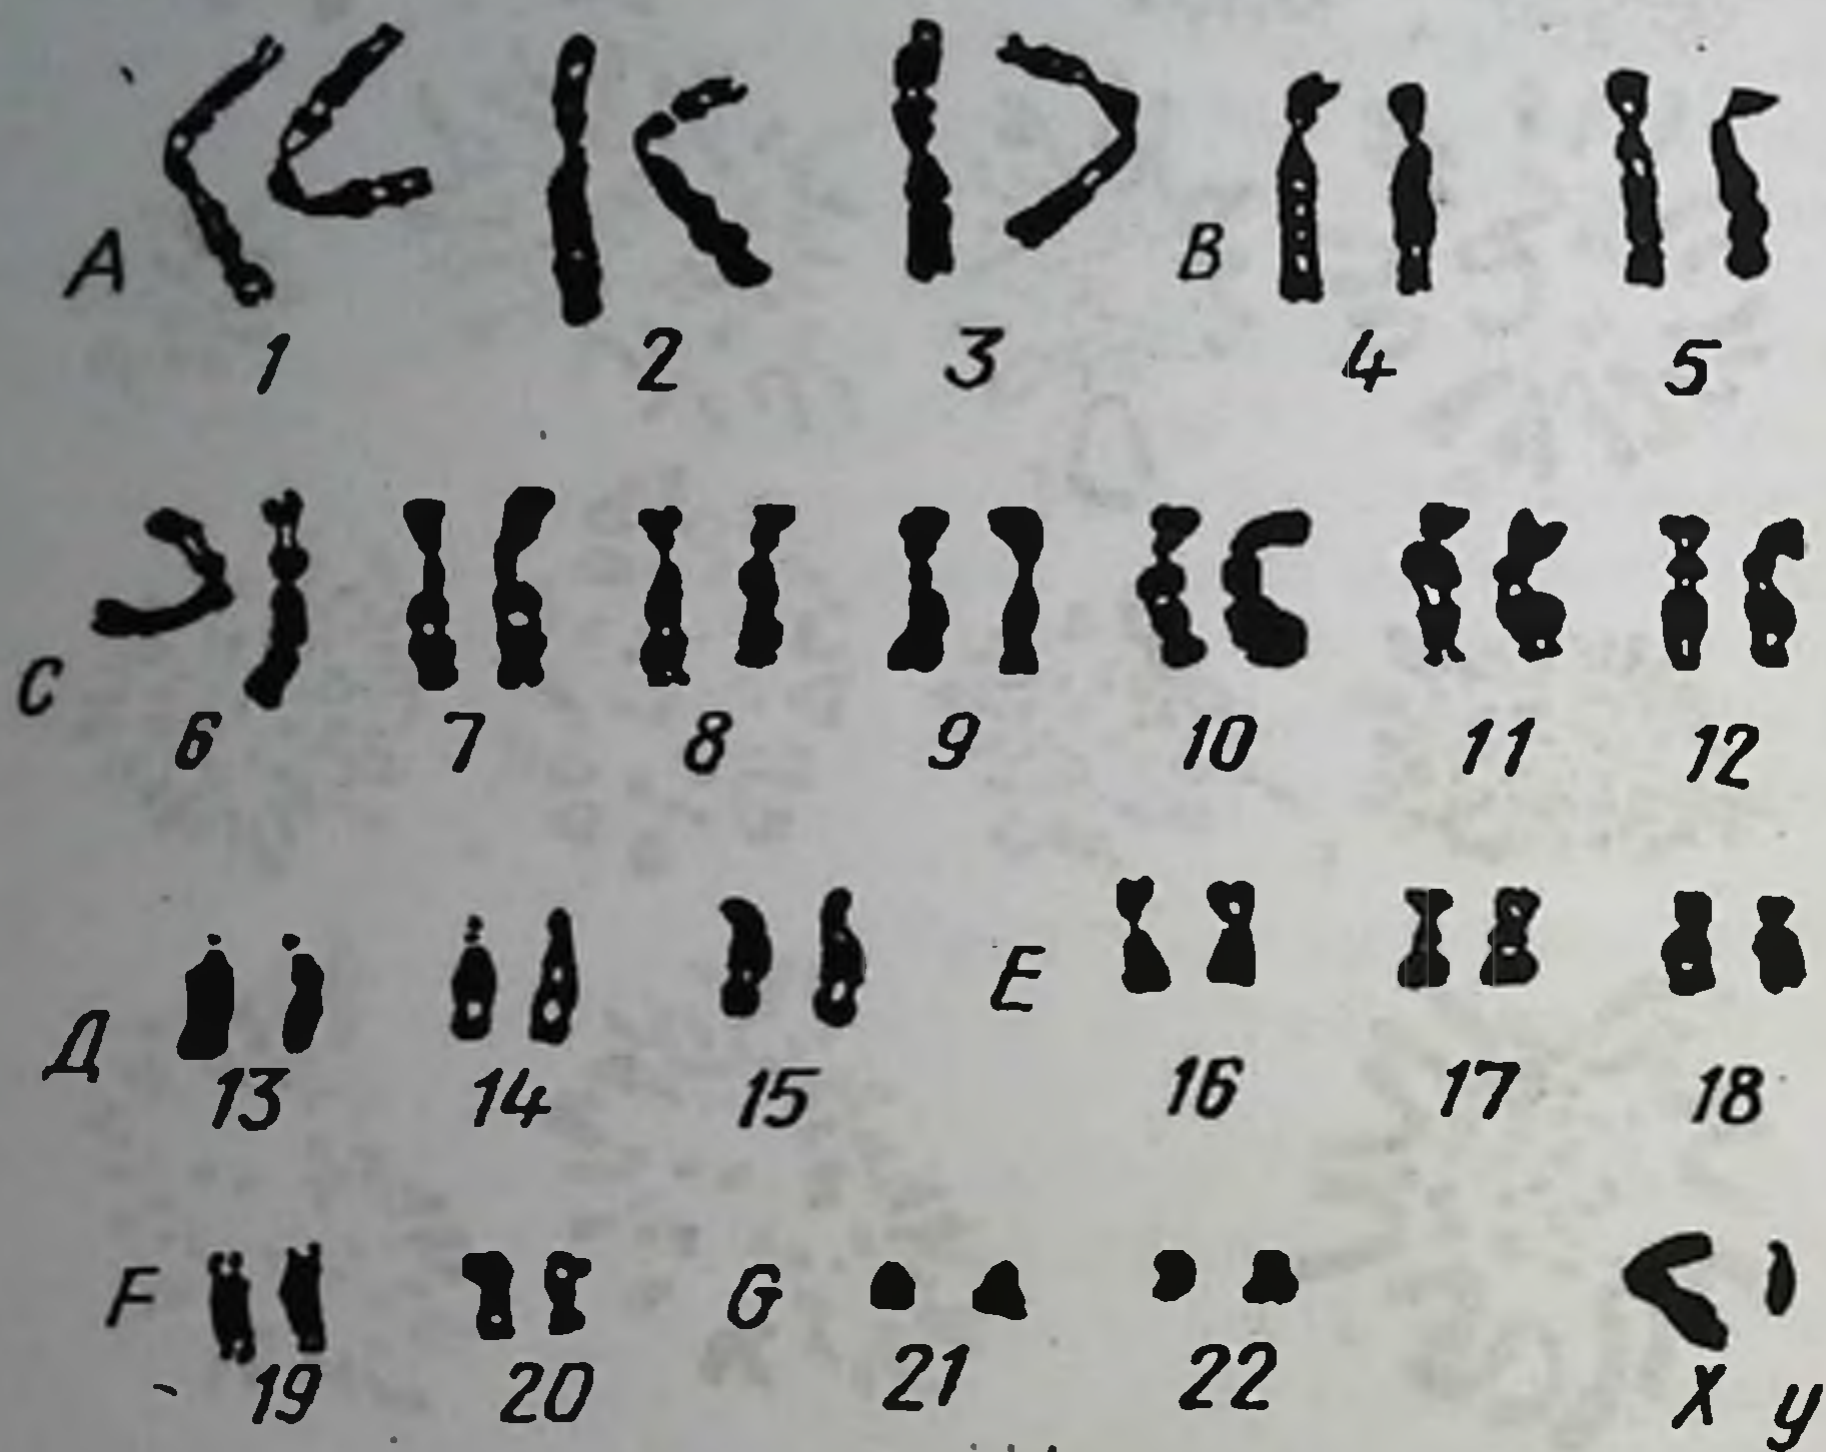 А В
1 2 3 4 5
С
6 7 8 9 10 11 12
Д Е
13 14 15 16 17 18
F G
19 20 21 22 X y